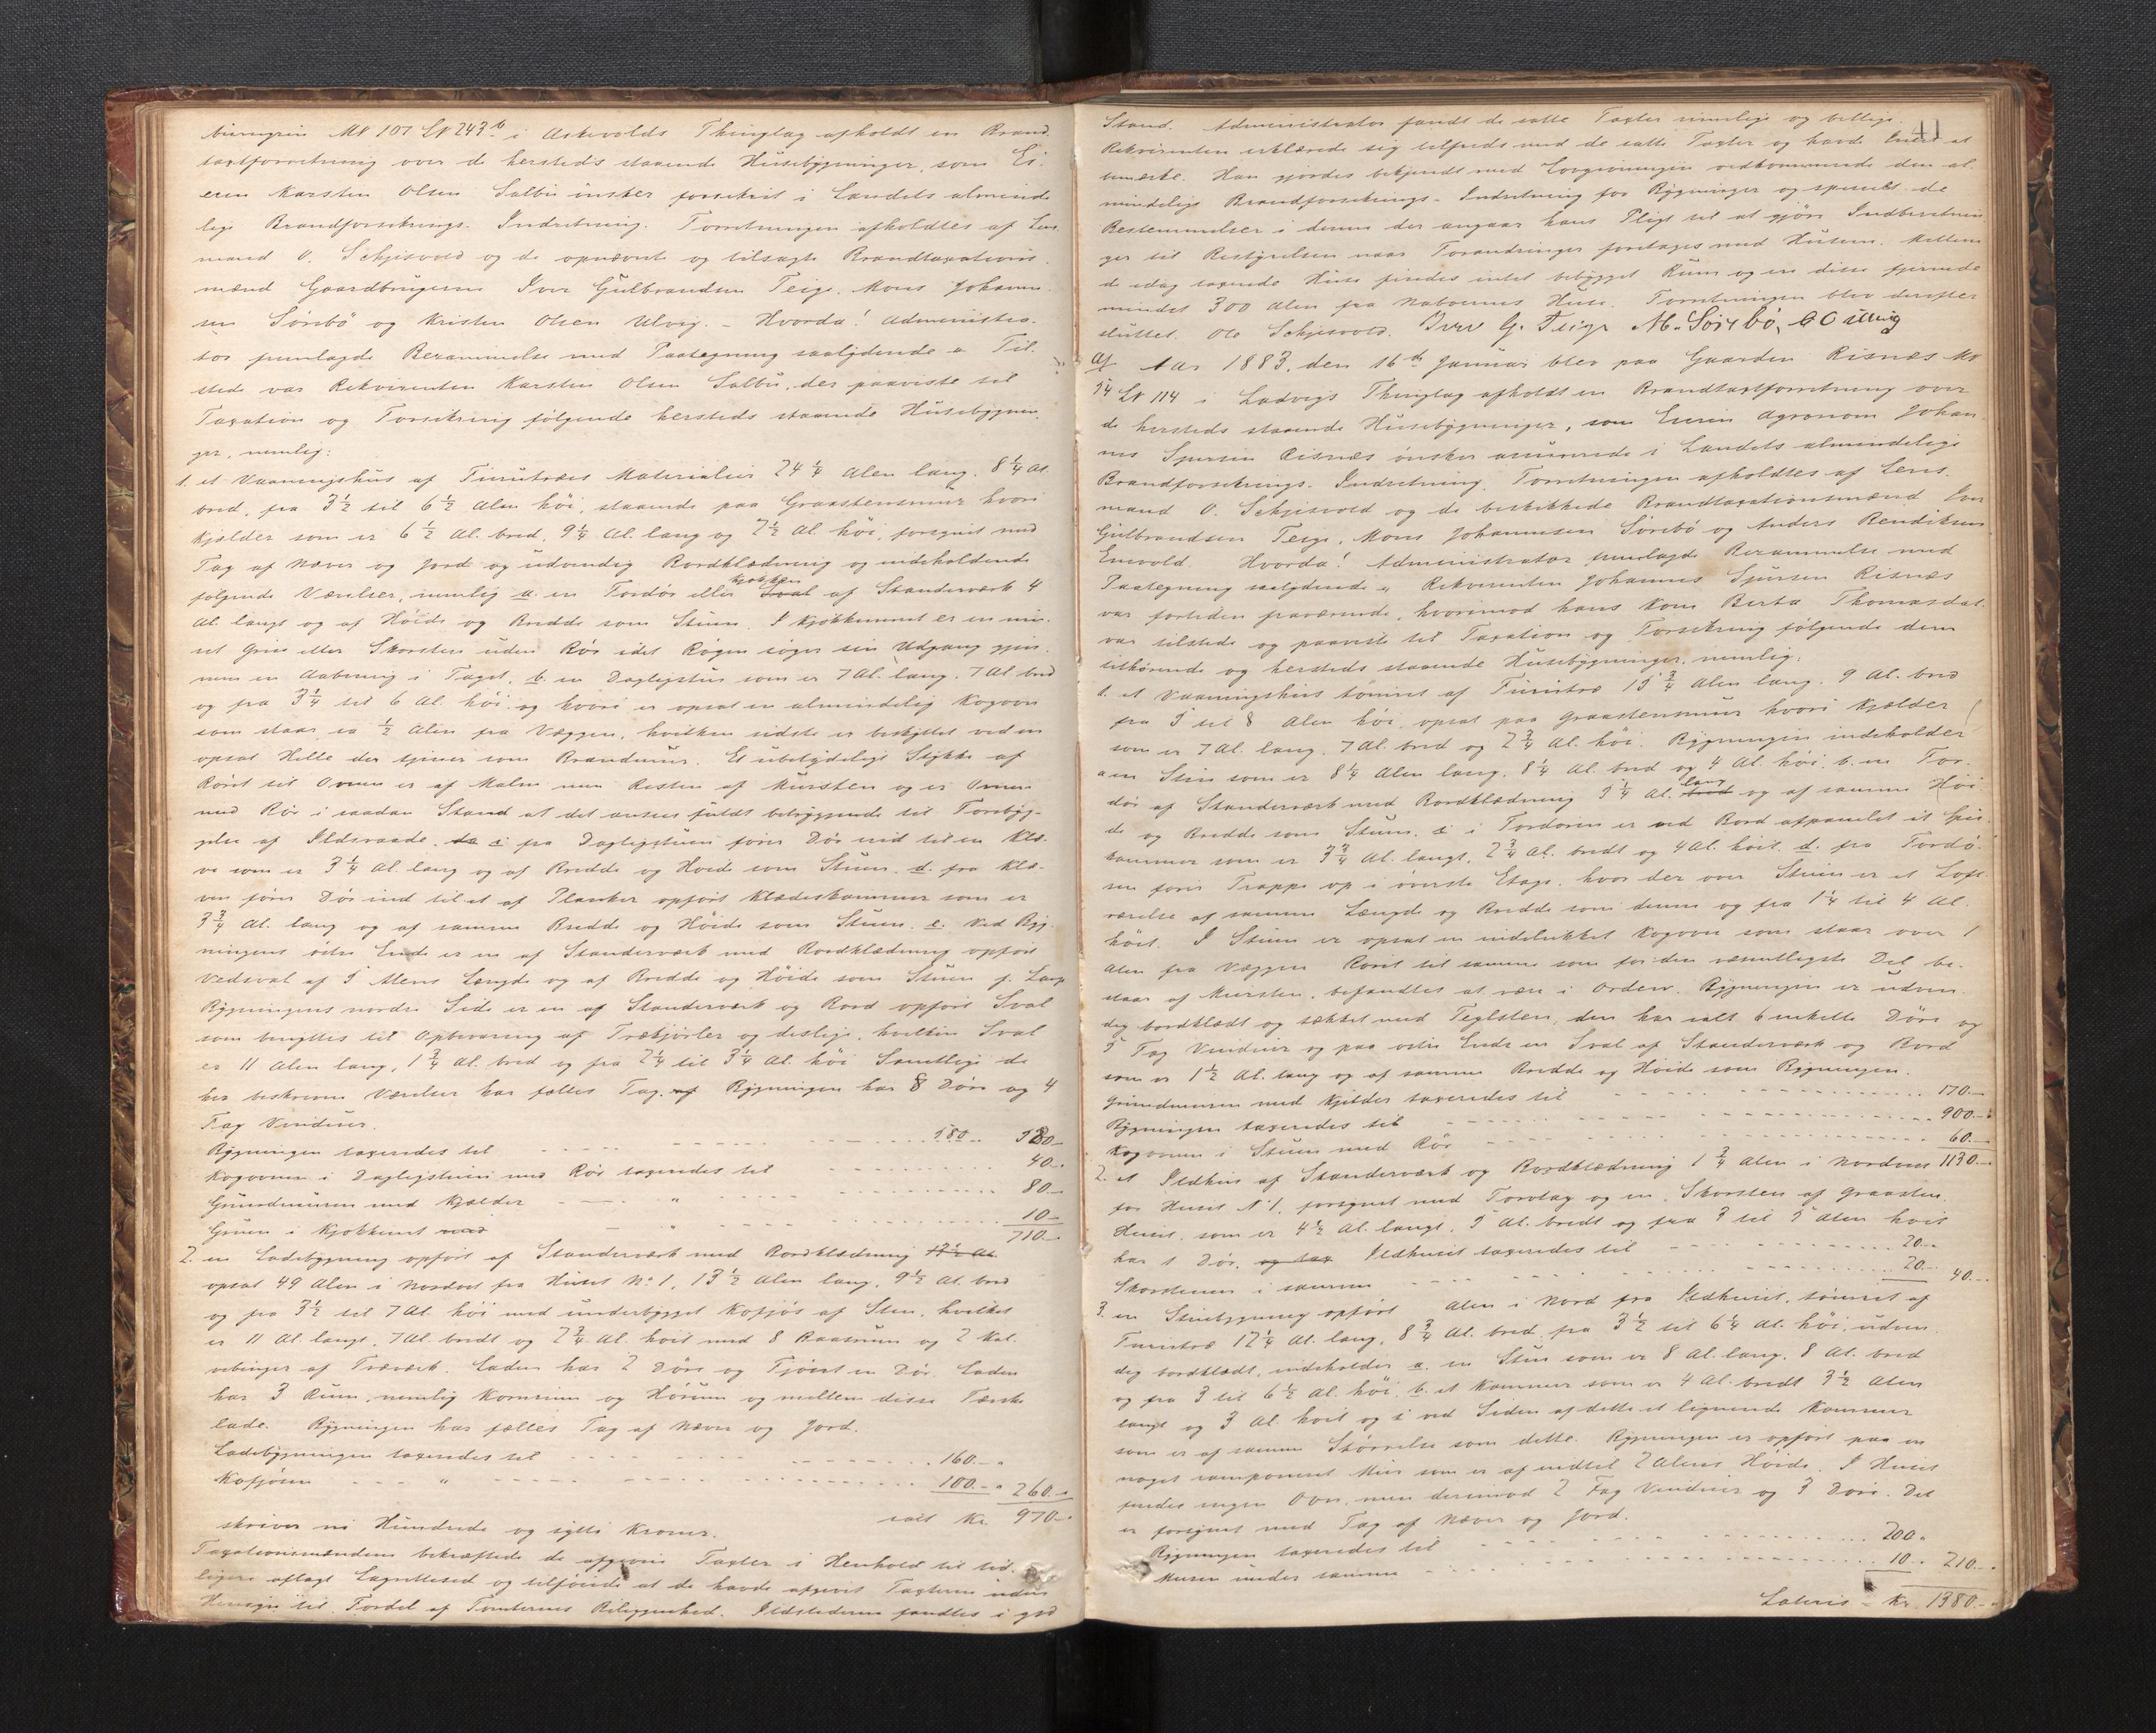 Mt 107 Lt 243 b i Askevolds Thinglag afholdt en Brand
taxtforretning over de hersteds staaende Husebygninger, som Ei-
eren Karsten Olsen Salbu ønsker forsikret i Landets alminde
lige Brandforsikrings-Indretning. Forretningen afholdtes af Lens
mand O. Schjisvold og de opnævnte og tilsagte Brandtaxations
mænd Gaardbrugerne Iver Gulbrandsen Teige, Mons Johanne-
sen Sørebö og Kristen Olsen Ulvig. – Hvorda! Administra-
tor fremlagde Berammelse med Paategning saalydende " Til-
stede var Rekvirenten Karsten Olsen Salbu, der paaviste til
Taxation og Forsikring følgende hersteds staaende Husebygnin
ger, nemlig:
1. et Vaaningshus af Furutræes Materialier 24 1/4 Alen lang, 8 1/4 Al.
bred, fra 3 1/2 til 6 1/2 Alen höi, staaende paa Graastensmur hvori
Kjælder som er 6 1/2 Al. bred, 9 1/4 Al. lang og 2 1/2 Al. höi, forsynet med
Tag af Næver og Jord og udvendig Bordklædning og indeholdende
følgende Værelser, nemlig a. en Fordör eller Kjøkken af Standerværk 4
Al. langt og af Höide og Bredde som Stuen. I Kjøkkenet er en mu-
ret Grue eller Skorsten uden Rör idet Rögen söger sin Udgang gjen-
nem en Aabning i Taget, b. en Dagligstue som er 7 Al. lang, 7 Al. bred
og fra 3 1/4 til 6 Al. höi og hvori er opsat en almindelig Kogovn
som staar ca 1/2 Alen fra Væggen, hvilken sidste er beskyttet ved en
opsat Helle der tjener som Brandmur. Et ubetydeligt Stykke af
Röret til Ovnen er af Malm men Resten af Mursten og er Ovnen
med Rör i saadan Stand at det ansees fuldt betryggende til Forebyg-
gelse af Ildsvaade. c. fra Dagligstuen förer Dör ind til en Klæ-
ve som er 3 1/4 Al. lang og af Bredde og Höide som Stuen. d. fra Klæ-
ven förer Dör ind til et af Planker opfört Klædeskammer som er
3 3/4 Al. lang og af samme Bredde og Höide som Stuen. e. Ved Byg-
ningens östre Ende er en af Standerværk med Bordklædning opfört
Vedsval af 5 Alens Længde og af Bredde og Höide som Stuen f. Langs
Bygningens nordre Side er en af Standerværk og Bord opfört Sval
som benyttes til Opbevaring af Trækjörler og deslige, hvilken Sval
er 11 Alen lang, 1 3/4 Al. bred og fra 2 1/4 til 3 1/4 Al. höi Samtlige de
her beskrevne Værelser har fælles Tag. Bygningen har 8 Döre og 4
Fag Vinduer.
Bygningen taxeredes til 580 580 –
Kogovnen i Dagligstuen med Rör taxeredes til 40 –
Grundmuren med Kjælder " 80 –
Gruen i Kjøkkenet " 10 –
710 –
2. en Ladebygning opfört af Standerværk med Bordklædning
opsat 49 Alen i Nordost fra Huset No 1, 13 1/2 Alen lang, 9 1/2 Al. bred
og fra 3 1/2 til 7 Al. höi med underbygget Kofjös af Sten, hvilket
er 11 Al. langt, 7 Al. bredt og 2 3/4 Al. höit med 8 Baasrum og 2 Kal-
vebinger af Træværk. Laden har 2 Döre og Fjöset en Dör. Laden
har 3 Rum, nemlig Kornrum og Hörum og mellem disse Tærske
lade. Bygningen har fælles Tag af Næver og Jord.
Ladebygningen taxeredes til 160. –
Kofjösen " 100. – 260. –
ialt Kr. 970 –
skriver ni Hundrede og sytti Kroner.
Taxationsmændene bekræftede de afgivne Taxter i Henhold til tid-
ligere aflagt Lagrettesed og tilföiede at de havde afgivet Taxterne uden
Hensyn til Fordel af Tomternes Beliggenhed. Ildstederne fandtes i god
41
Stand. Administrator fandt de satte Taxter rimelige og billige.
Rekvirenten erklærede sig tilfreds med de satte Taxter og havde Intet at
bemærke. Han gjordes bekjendt med Lovgivningen vedkommende den al-
mindelige Brandforsikrings-Indretning for Bygninger og specielt de
Bestemmelser i denne der angaar hans Pligt til at gjöre Indberetnin
ger til Bestyrelsen naar Forandringer foretages med Husene. Mellem
de idag taxerede Huse findes intet bebygget Rum og er disse fjernede
mindst 300 Alen fra Naboernes Huse. Forretningen blev derefter
sluttet. Ole Schjisvold. Iver G. Teige M. Sørebö,
Aar 1883, den 16de Januar blev paa Gaarden Risnæs Mt
54 Lt 114 i Ladvigs Thinglag afholdt en Brandtaxtforretning over
de hersteds staaende Husebygninger, som Eieren Agronom Johan
nes Sjursen Risnæs ønsker assurerede i Landets almindelige
Brandforsikrings-Indretning. Forretningen afholdtes af Lens-
mand O. Schjisvold og de beskikkede Brandtaxationsmænd Iver
Gulbrandsen Teige, Mons Johannesen Sørebö og Anders Bendiksen
Enevold. Hvorda! Administrator fremlagde Berammelse med
Paategning saalydende " Rekvirenten Johannes Sjursen Risnæs
var fortiden fraværende, hvorimod hans Kone Berta Thomasdat.
var tilstede og paaviste til Taxation og Forsikring følgende dem
tilhörende og hersteds staaende Husebygninger, nemlig:
1. et Vaaningshus tömret af Furutræ 15 3/4 Alen lang, 9 Al. bred
fra 5 til 8 Alen höi, opsat paa Graastensmur hvori Kjælder
som er 7 Al. lang, 7 Al. bred og 2 3/4 Al. höi. Bygningen indeholder
a en Stue som er 8 1/4 Alen lang, 8 1/4 Al. bred og 4 Al. höi, b. en For-
dör af Standerværk med Bordklædning 5 1/4 Al. lang og af samme Höi
de og Bredde som Stuen. c i Fordören er ved Bord afpanelet et Spis-
kammer som er 3 3/4 Al. langt, 2 3/4 Al. bredt og 4 Al. höit. d. fra Fordö-
ren förer Trappe op i överste Etage, hvor der over Stuen er et Loft-
værelse af samme Længde og Bredde som denne og fra 1 1/4 til 4 Al.
höit. I Stuen er opsat en indelukket Kogovn som staar over 1
Alen fra Væggen. Röret til samme som for den væsentligste Del be-
staar af Mursten, befandtes at være i Orden. Bygningen er udven-
dig bordklædt og tækket med Teglsten, den har ialt 6 enkelte Döre og
5 Fag Vinduer og paa östre Ende en Sval af Standerværk og Bord
som er 1 1/2 Al. lang og af samme Bredde og Höide som Bygningen.
Grundmuren med Kjelder taxeredes til 170 –
Bygningen taxeredes til 900 –
Kogovnen i Stuen med Rör 60 –
1130 –
2. et Ildhus af Standerværk og Bordklædning 1 3/4 Alen i Norden
for Huset No 1, forsynet med Torvtag og en Skorsten af Graasten.
Huset, som er 4 1/2 Al. langt, 5 Al. bredt og fra 3 til 5 Alen höit
har 1 Dör. Ildhuset taxeredes til 20. –
Skorstenen i samme 20. – 40. –
3. en Stuebygning opfört Alen i Nord fra Ildhuset, tömret af
Furutræ 12 1/4 Al. lang, 8 3/4 Al. bred, fra 3 1/2 til 6 1/4 Al. höi, udven-
dig bordklædt, indeholder a. en Stue som er 8 Al. lang, 8 Al. bred
og fra 3 til 6 1/2 Al. höi, b. et Kammer som er 4 Al. bredt 3 1/2 Alen
langt og 3 Al. höit og c ved Siden af dette et lignende Kammer
som er af samme Størrelse som dette. Bygningen er opfört paa en
noget ramponeret Mur som er af indtil 2 Alens Höide. I Huset
findes ingen Ovn, men derimod 2 Fag Vinduer og 3 Döre. Det
er forsynet med Tag af Næver og Jord.
Bygningen taxeredes til 200 "
Muren under samme 10 " 210 –
Lateris – Kr 1380. –